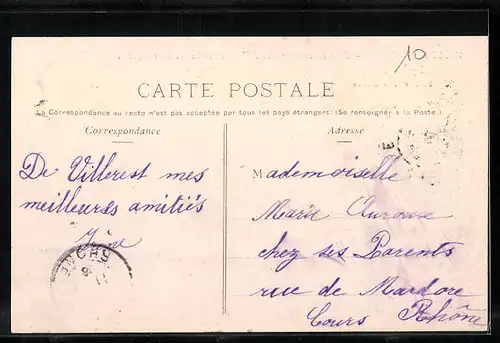 10
CARTE POSTALE
La Correspondance au recto n'est pas acceptée par tous les pays étrangers. (Se renseigner à la Poste.)
Correspondance
Adresse
De Villerest mes
meilleures amitiés
Mademoiselle
Marie
chez ses Parents
rue de Mardore
Cours Rhône